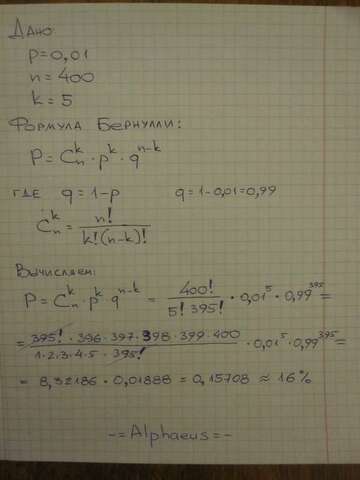 Дано
p=0,01
n=400
k=5
Формула Бернулли:
P=C_n^k·p^k·q^{n-k}
где q=1-p q=1-0,01=0,99
C_n^k=n!/k!(n-k)!
Вычисляем:
P=C_n^k·p^k·q^{n-k}=400!/5!395!·0,01^5·0,99^{395}=
=395!·396·397·398·399·400/1·2·3·4·5·395!·0,01^5·0,99^{395}=
=8,32186·0,01888=0,15708≈16%
-=Alphaeus=-